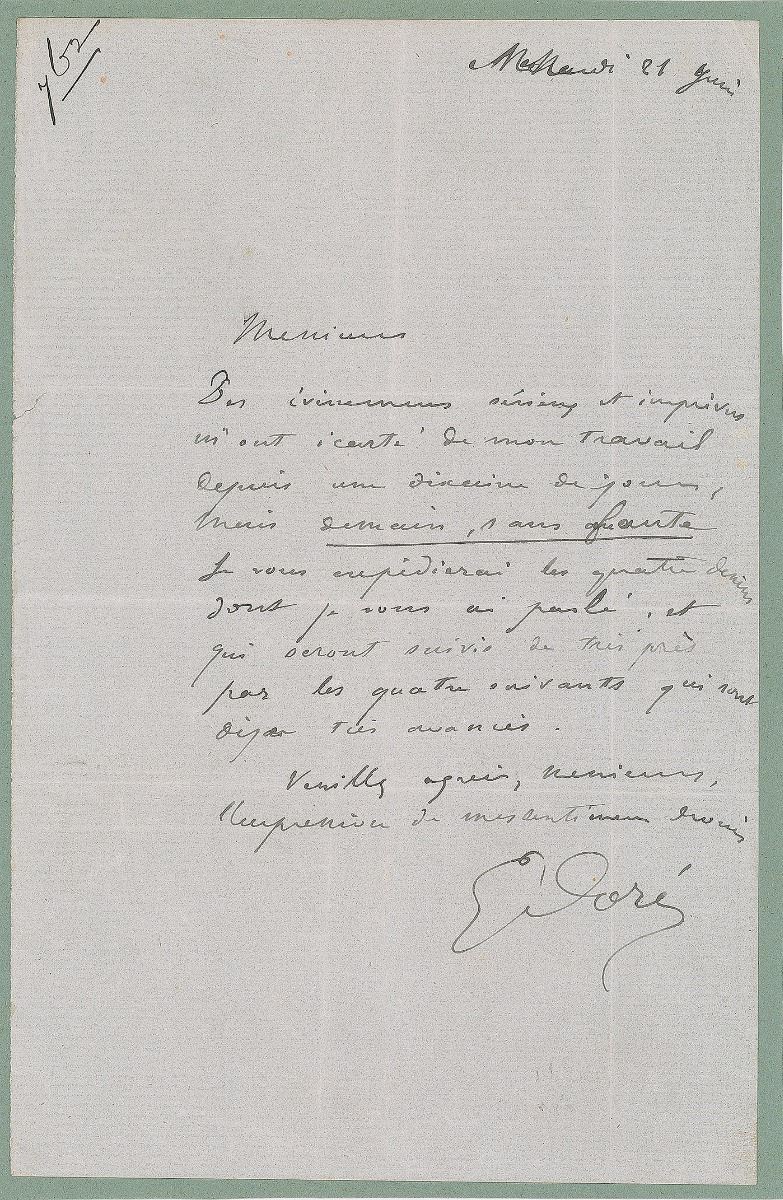 762
21 Juin
Messieurs
Des évènemens sérieux et imprévus
m'ont écarté de mon travail
depuis une dixaine de jours,
mais demain, sans faute
Je vous expédierai les quatre dessins
dont je vous ai parlé, et
qui seront suivis de très près
par les quatre suivants qui sont
déja très avancés.
Veuillez agréer, Messieurs,
l'expression de mes sentimens dévoués
G. Doré